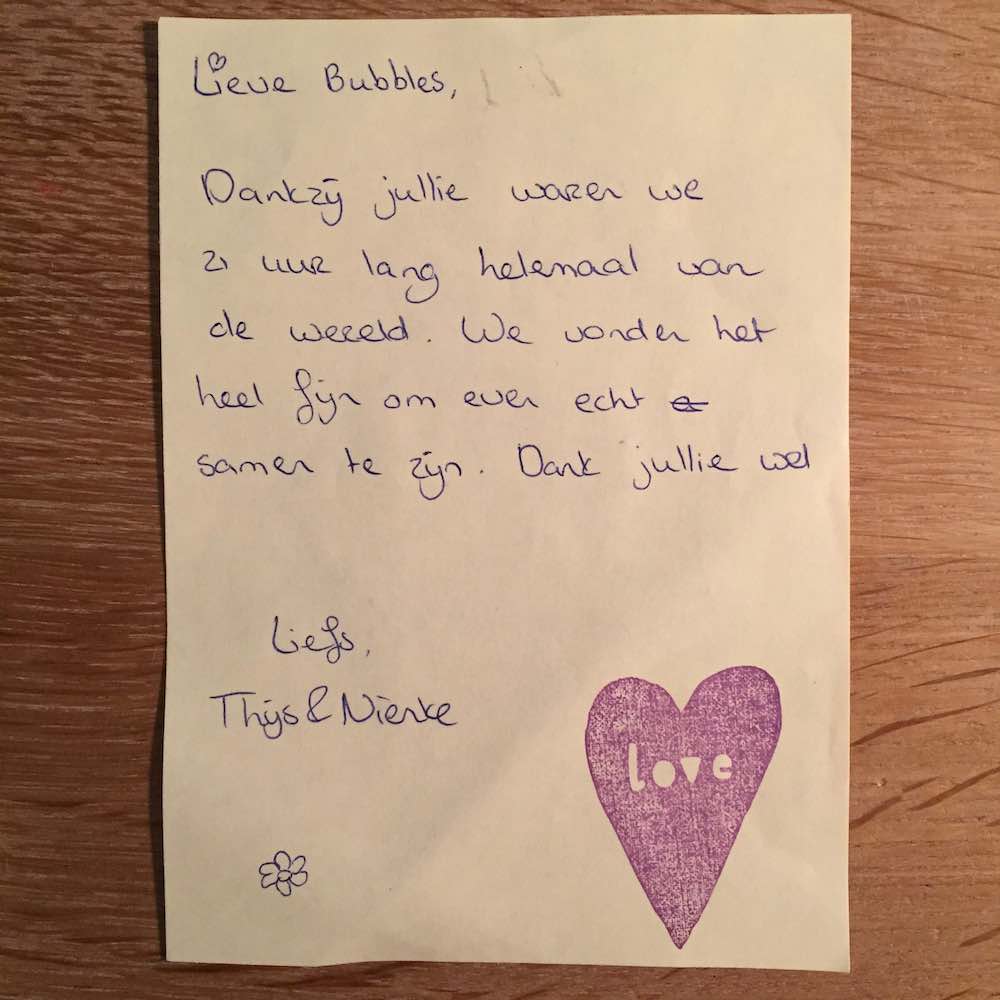 Lieve Bubbles,
Dankzij jullie waren we
21 uur lang helemaal van
de wereld. We vonden het
heel fijn om even echt
samen te zijn. Dank jullie wel
Liefs,
Thijs & Nienke
love